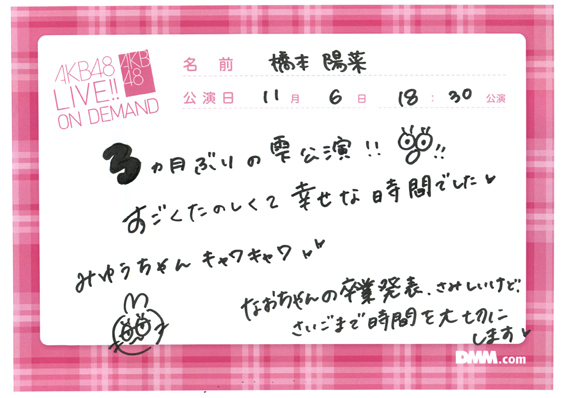 AKB48
LIVE!!
ON DEMAND
AKB
48
名前 橋本 陽菜
公演日 11月 6日 18:30公演
3ヵ月ぶりの雫公演!! !!
すごくたのしくて幸せな時間でした♥
みゆうちゃん キャワキャワ♥♥
なおちゃんの卒業発表、さみしいけど、
さいごまで時間を大切に
します♥
DMM.com